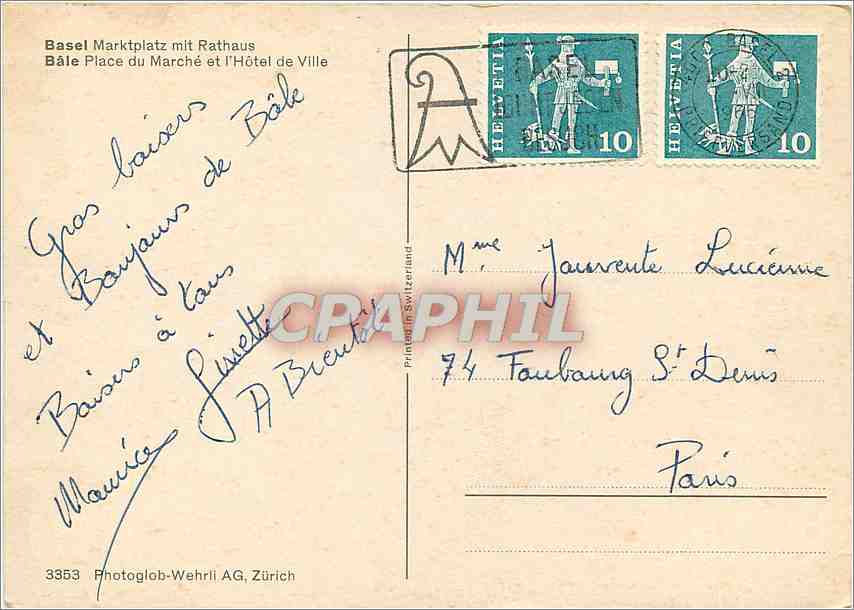 Basel Marktplatz mit Rathaus
Bâle Place du Marché et l'Hôtel de Ville
Gros baisers
et Bonjours de Bâle
Baisers à tous
Maurice Ginette
A Bientôt
3353 Photoglob-Wehrli AG, Zürich
Printed in Switzerland
HELVETIA 10
HELVETIA 10
BASEL
Mme Jouvente Lucienne
74 Faubourg St Denis
Paris
CPAPHIL